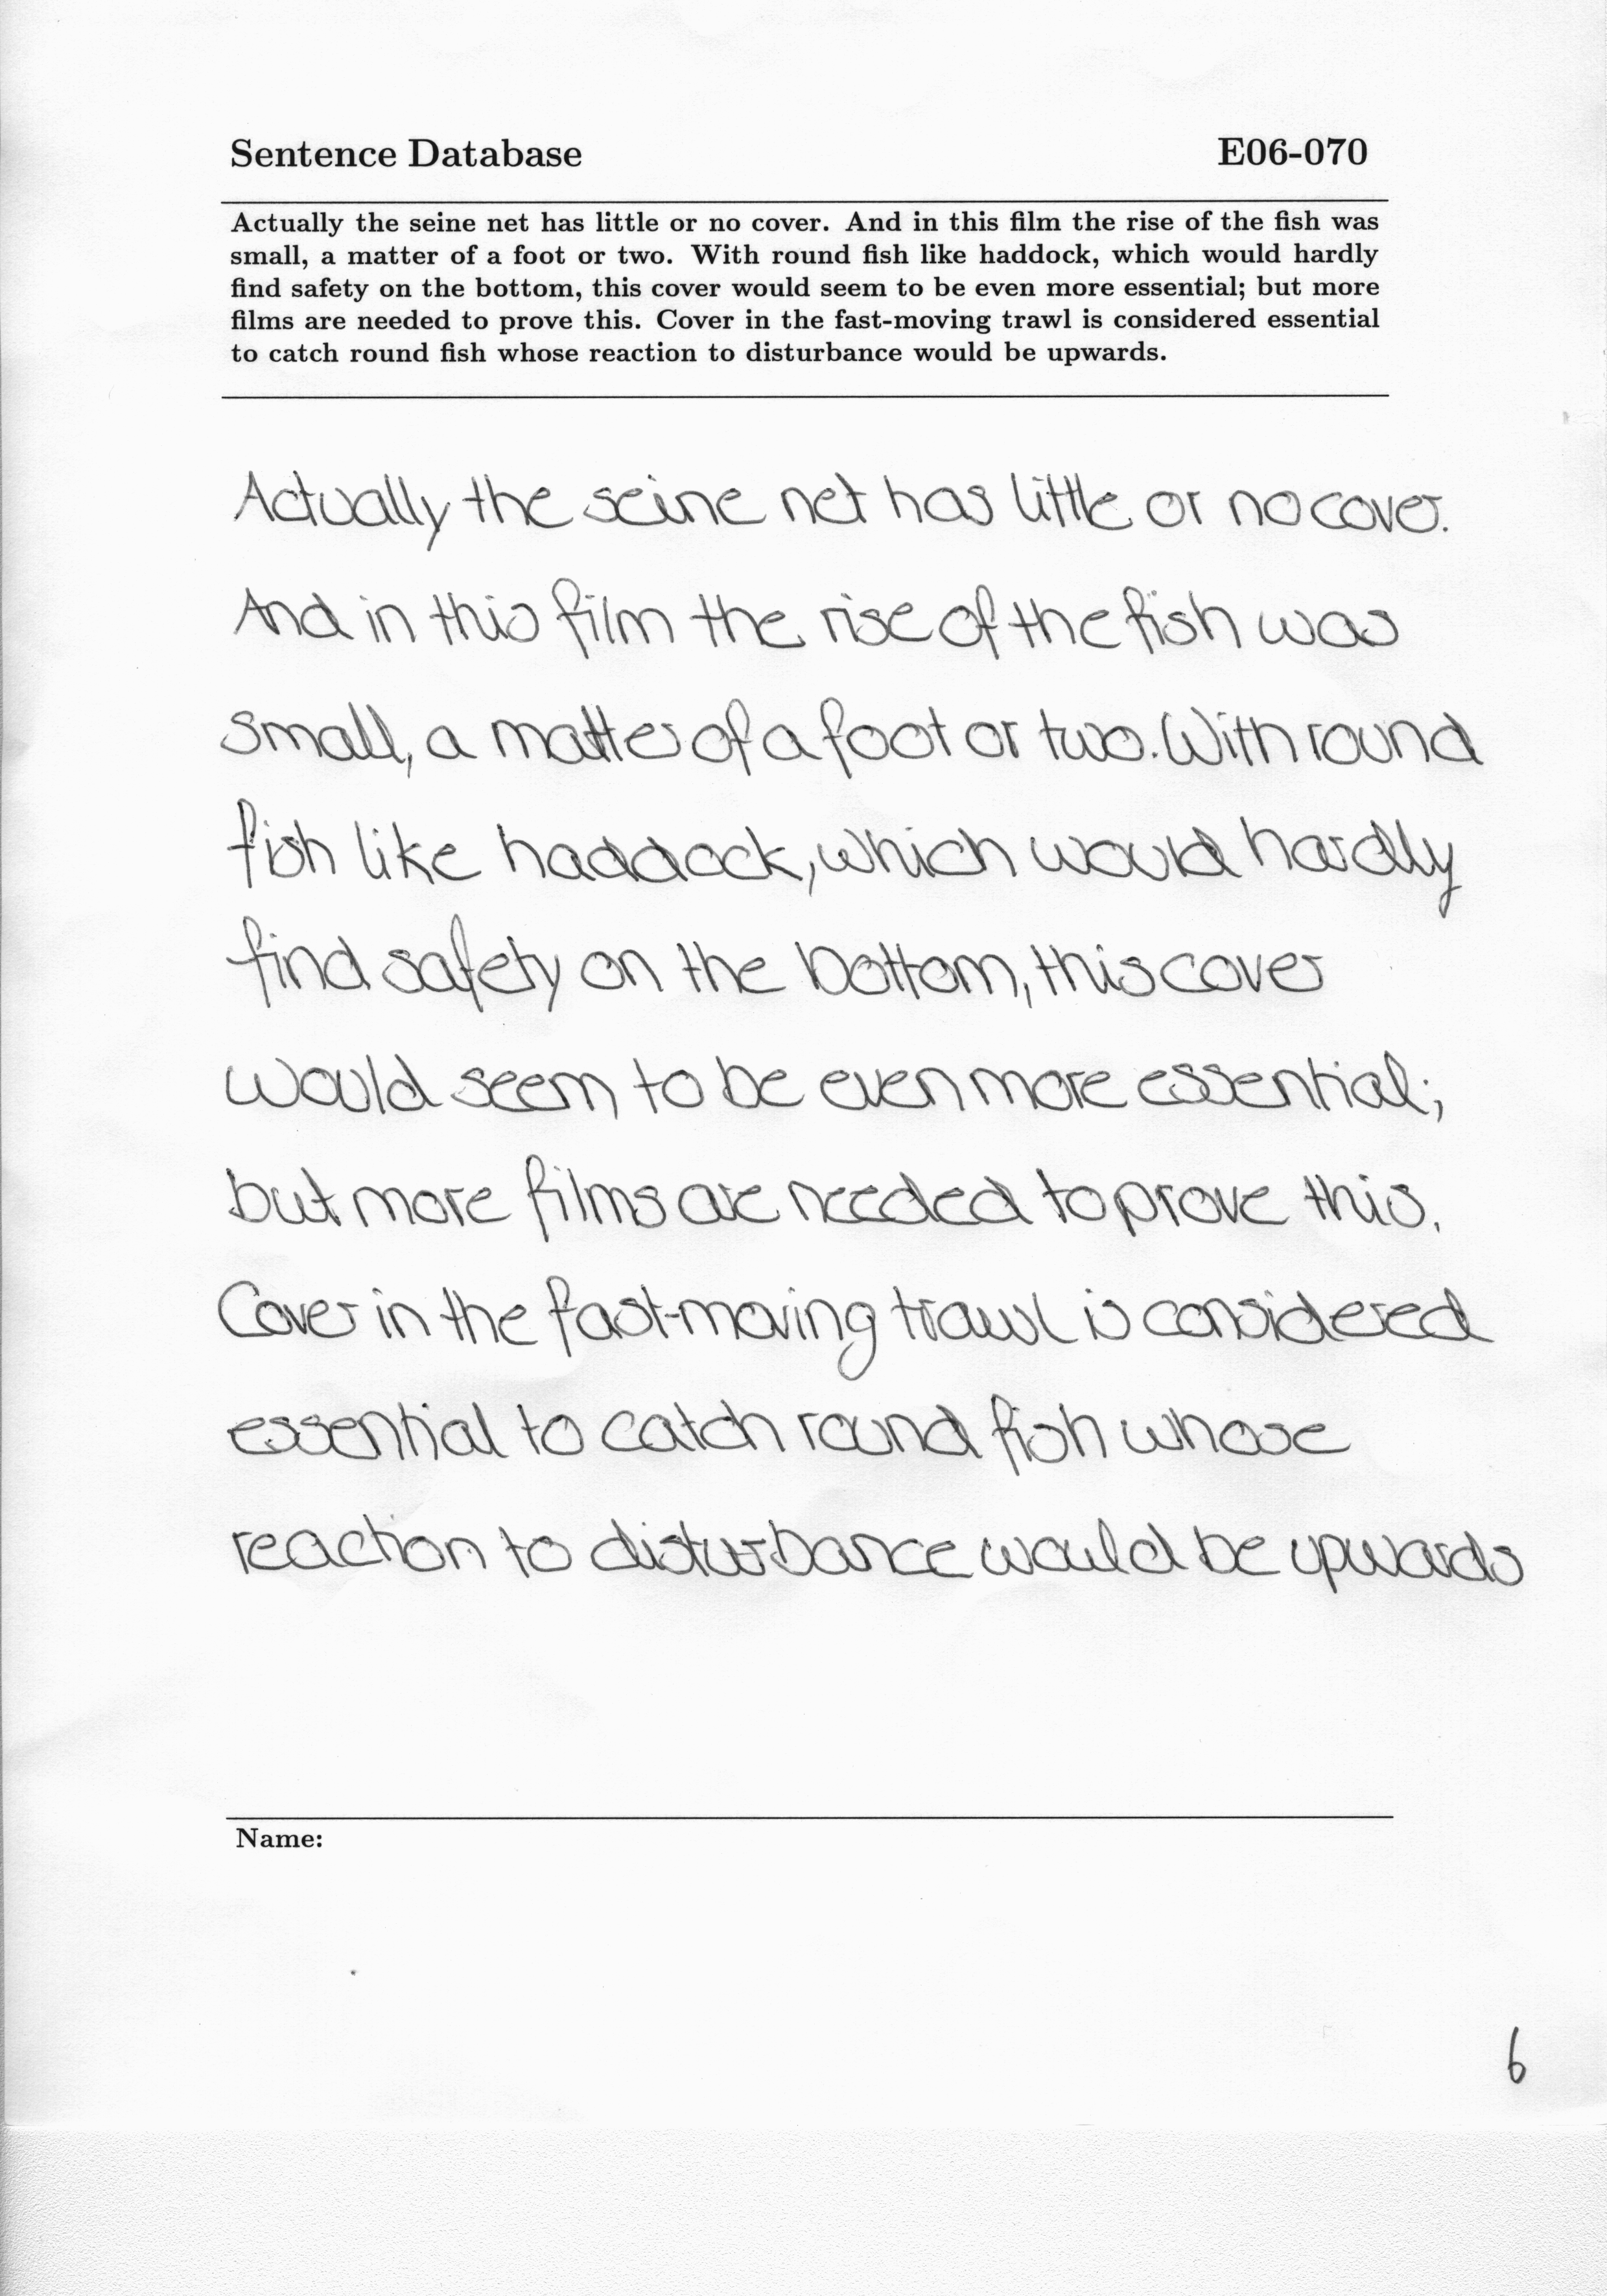 Sentence Database E06-070
Actually the seine net has little or no cover. And in this film the rise of the fish was
small, a matter of a foot or two. With round fish like haddock, which would hardly
find safety on the bottom, this cover would seem to be even more essential; but more
films are needed to prove this. Cover in the fast-moving trawl is considered essential
to catch round fish whose reaction to disturbance would be upwards.
Actually the seine net has little or no cover.
And in this film the rise of the fish was
small, a matter of a foot or two. With round
fish like haddock, which would hardly
find safety on the bottom, this cover
would seem to be even more essential;
but more films are needed to prove this.
Cover in the fast-moving trawl is considered
essential to catch round fish whose
reaction to disturbance would be upwards
Name:
6